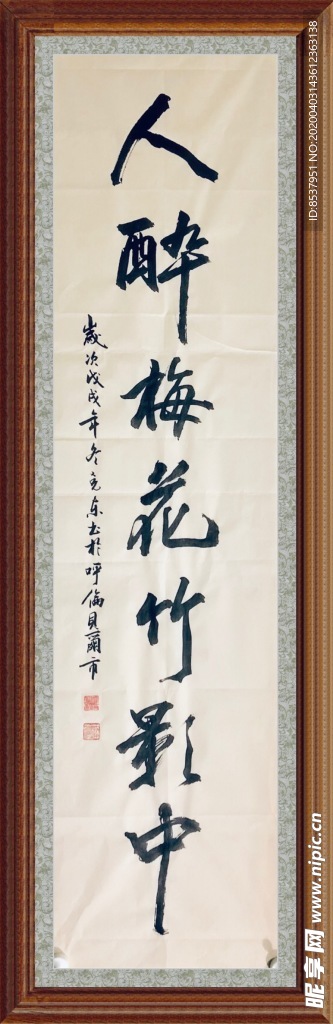 人醉梅花竹影中
歲次戊戌年冬克东书於呼倫貝爾市
ID:8537951 NO:20200403143612363138
昵享网 www.nipic.cn